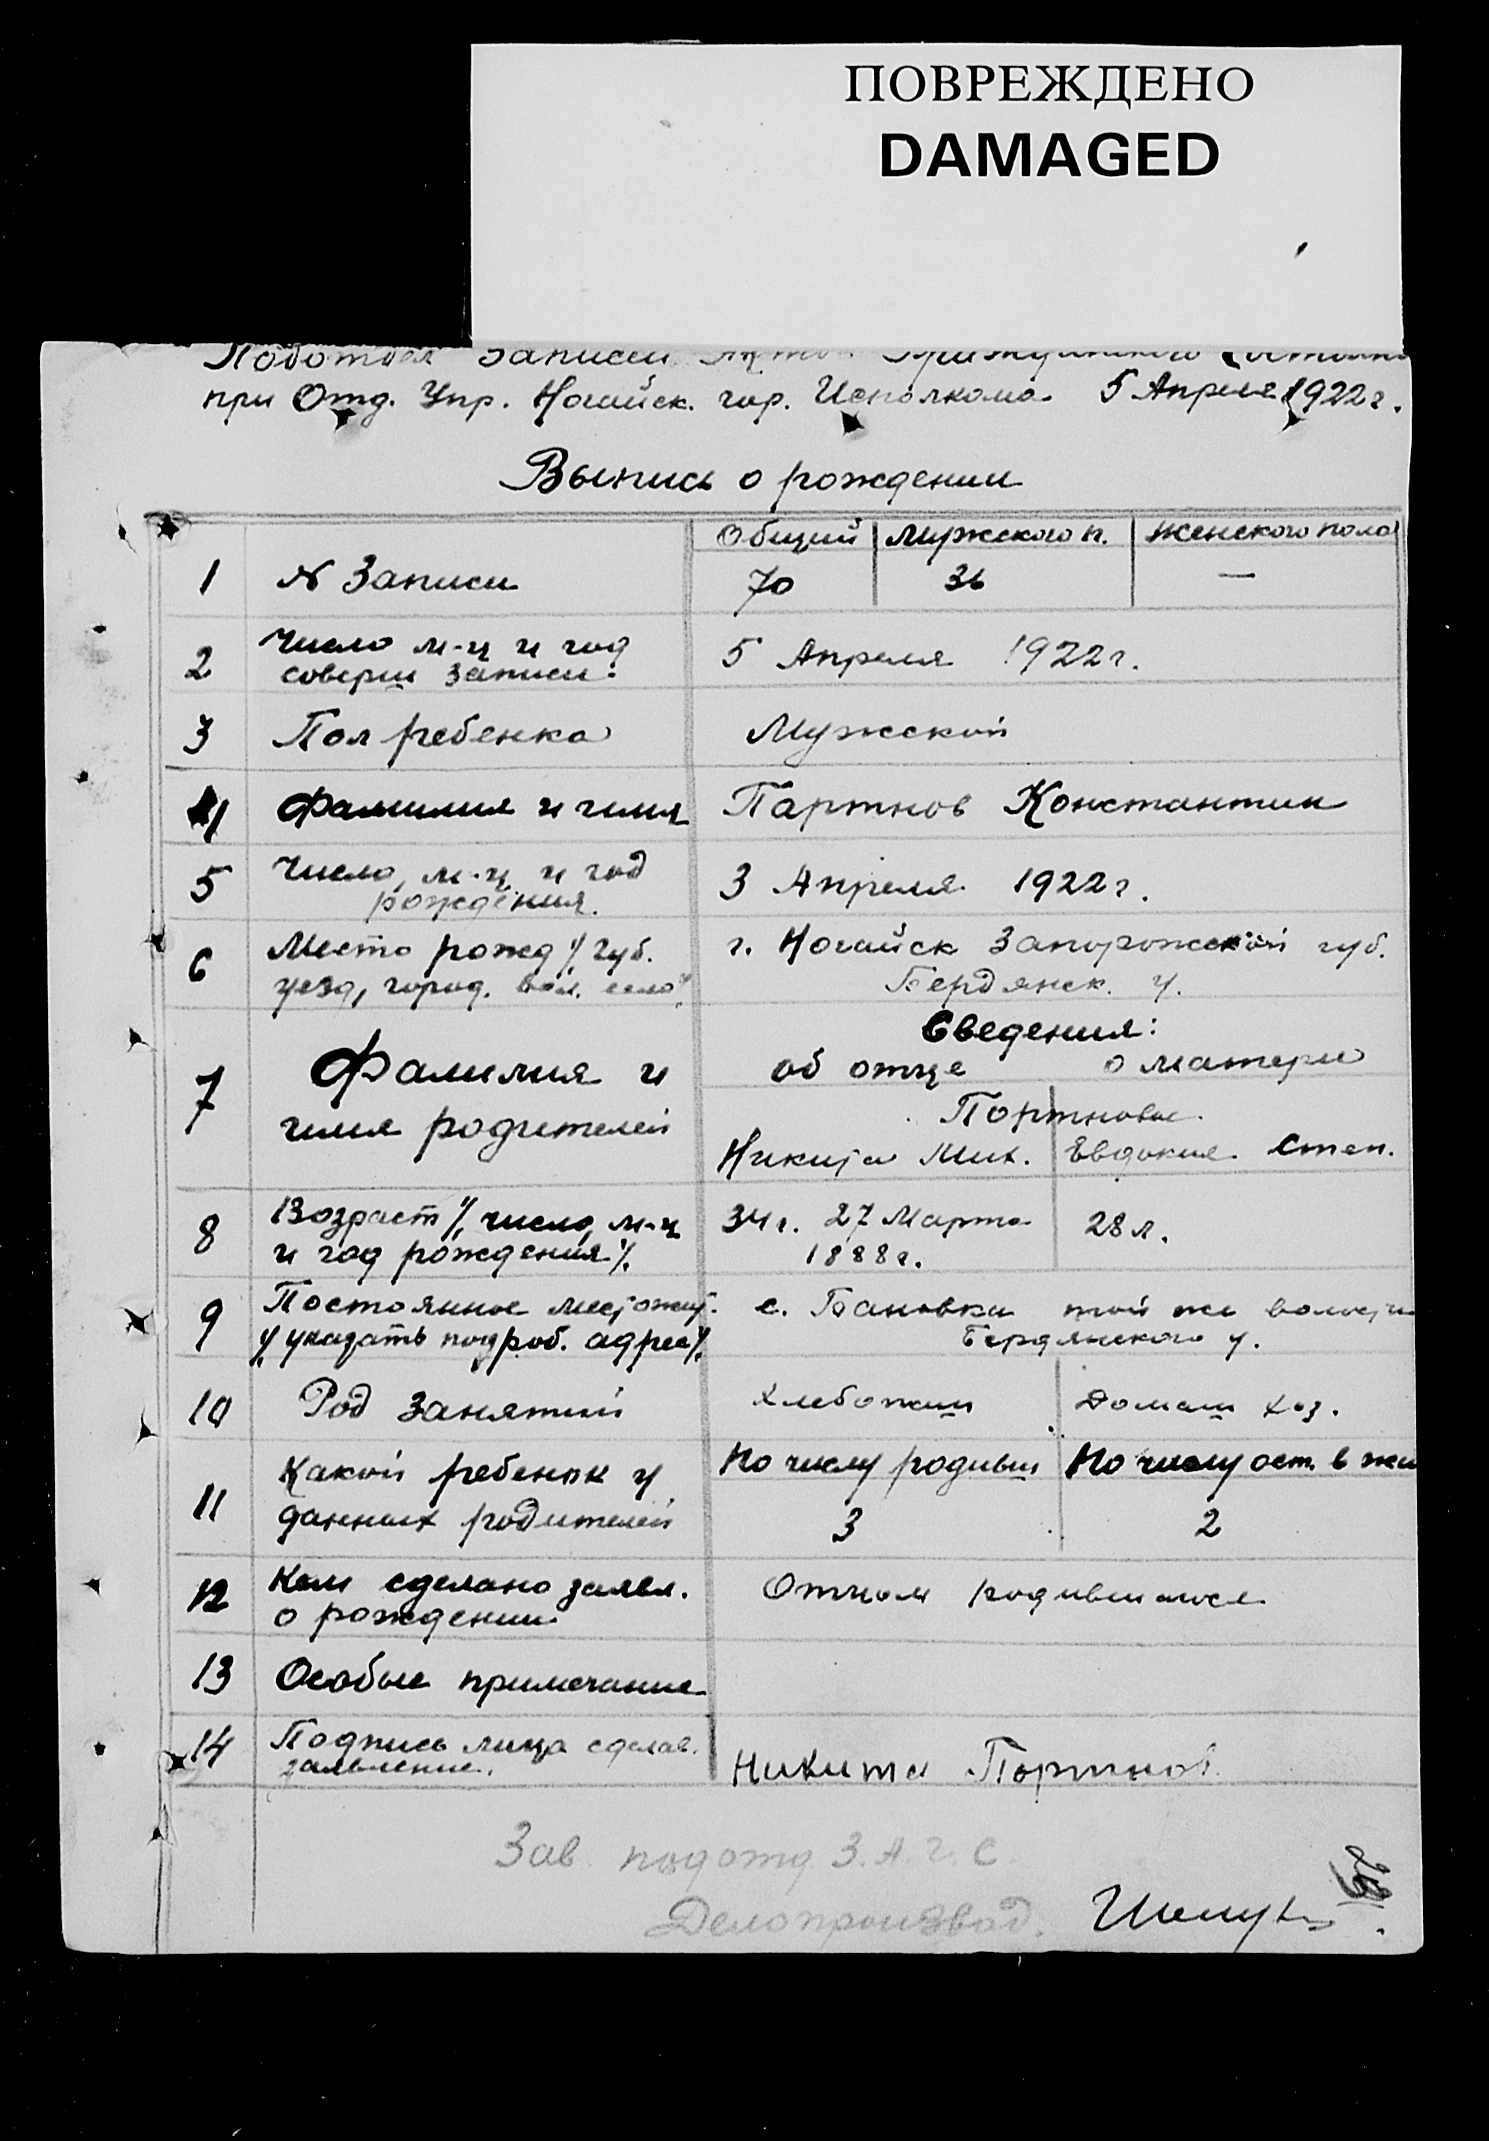 ПОВРЕЖДЕНО
DAMAGED
Подотдел Записи Актов Гражданского Состоян
при Отд. Упр. Ногайск. гор. Исполкома 5 Апреля 1922 г.
Выпись о рождении
Общий Мужского п. Женского пола
1 № Записи 70 36 —
2 Число м-ц и год
соверш записи. 5 Апреля 1922 г.
3 Пол ребенка Мужской
4 Фамилия и имя Партнов Константин
5 Число, м-ц и год
рождения. 3 Апреля 1922 г.
6 Место рожд. /губ. г. Ногайск Запорожской губ.
уезд, город. вол. село/ Бердянск. у.
Сведения:
7 Фамилия и об отце о матери
Портновы
имя родителей Никита Мих. Евдокия Степ.
8 Возраст /, число, м-ц 34 г. 27 Марта 28 л.
и год рождения/. 1888 г.
9 Постоянное местожит. с. Бановка той же волости
/указать подроб. адрес/. Бердянского у.
10 Род занятий Хлебопаш Домаш хоз.
11 Какой ребенок у По числу родивш По числу ост. в жи
данных родителей 3 2
12 Кем сделано заявл. Отцом родившагося
о рождении
13 Особые примечание
14 Подпись лица сделав.
заявление. Никита Портнов
Зав. подотд З.А.Г.С.
Делопроизвод.